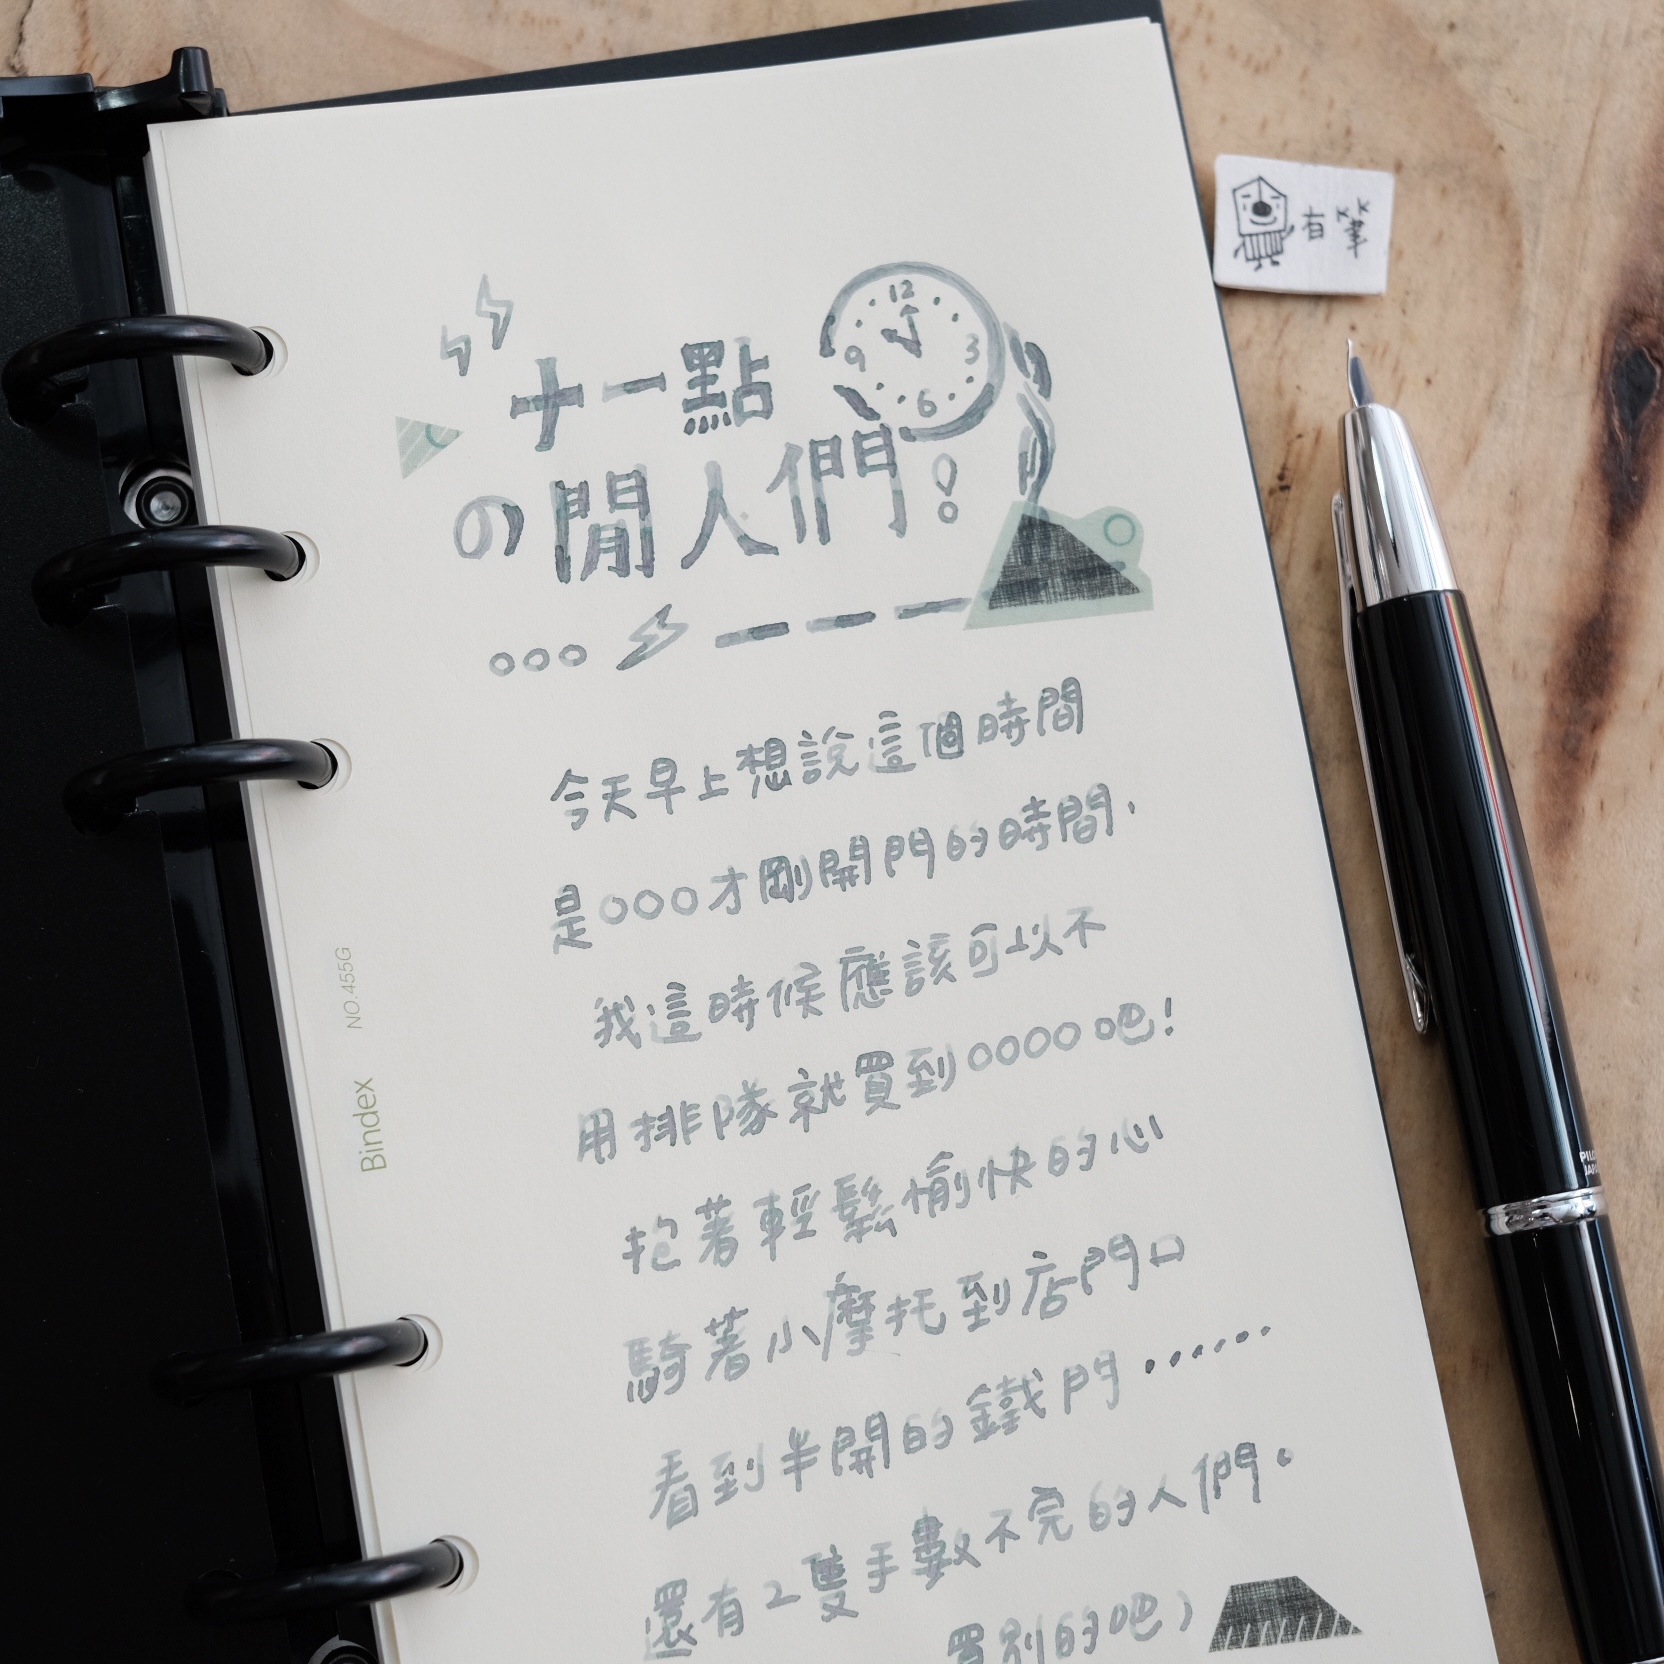 十一點
の閒人們!
12
9 3
6
今天早上想說這個時間
是○○○才剛開門的時間.
我這時候應該可以不
用排隊就買到○○○○吧!
抱著輕鬆愉快的心
騎著小摩托到店門口
看到半開的鐵門......
還有2隻手數不完的人們。
買別的吧)
Bindex NO.455G
有筆
PILOT
JAPAN